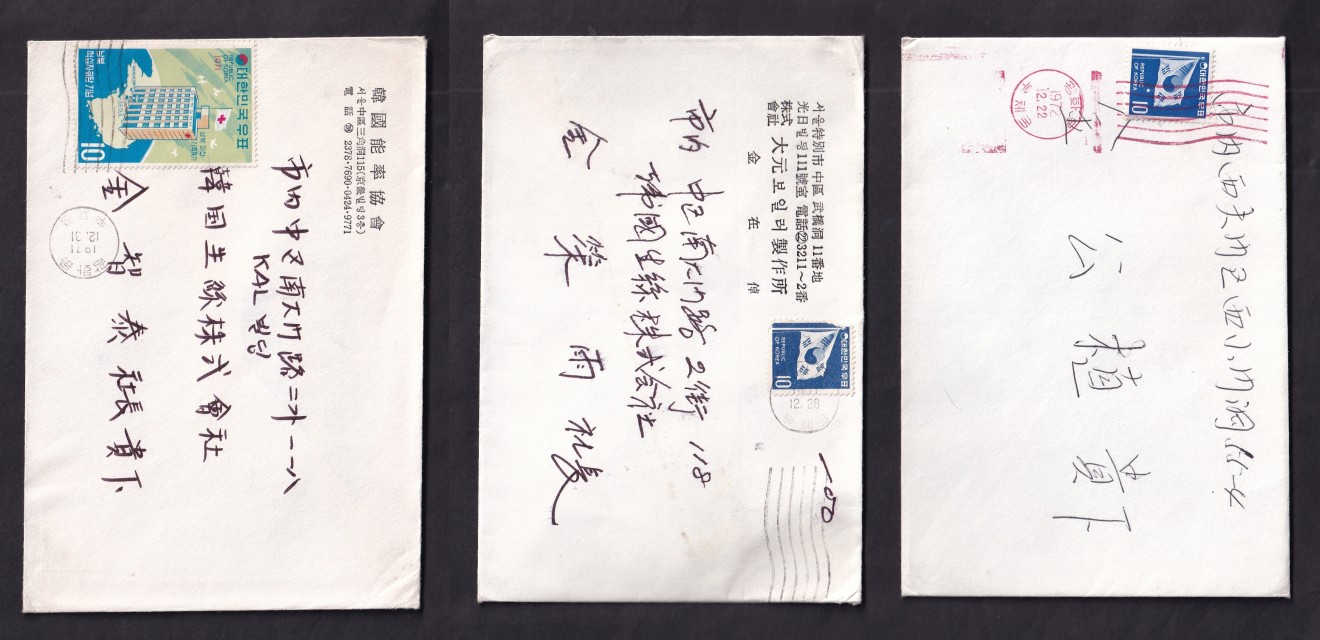 韓國能率協會
서울中區三角洞115(京養빌딩3층)
電話 2378·7690·0424·9771
市內中区南大门路二가一一八
KAL빌딩
韓国生絲株式會社
金智泰社長貴下
대한민국우표
1971
REPUBLIC OF KOREA
남북적십자회담기념
10
1971
12.31
서울特別市中區武橋洞11番地
光日빌딩111號室 電話㉒3211~2番
株式會社 大元보일러製作所
金在倬
市內 中区南大门路2街118
韓國生絲株式会社
金 雨 社長
대한민국우표
REPUBLIC OF KOREA
10
12.28
대한민국우표
REPUBLIC OF KOREA
10
1972
12.22
市内西大门区西小门洞
公 植 貴下